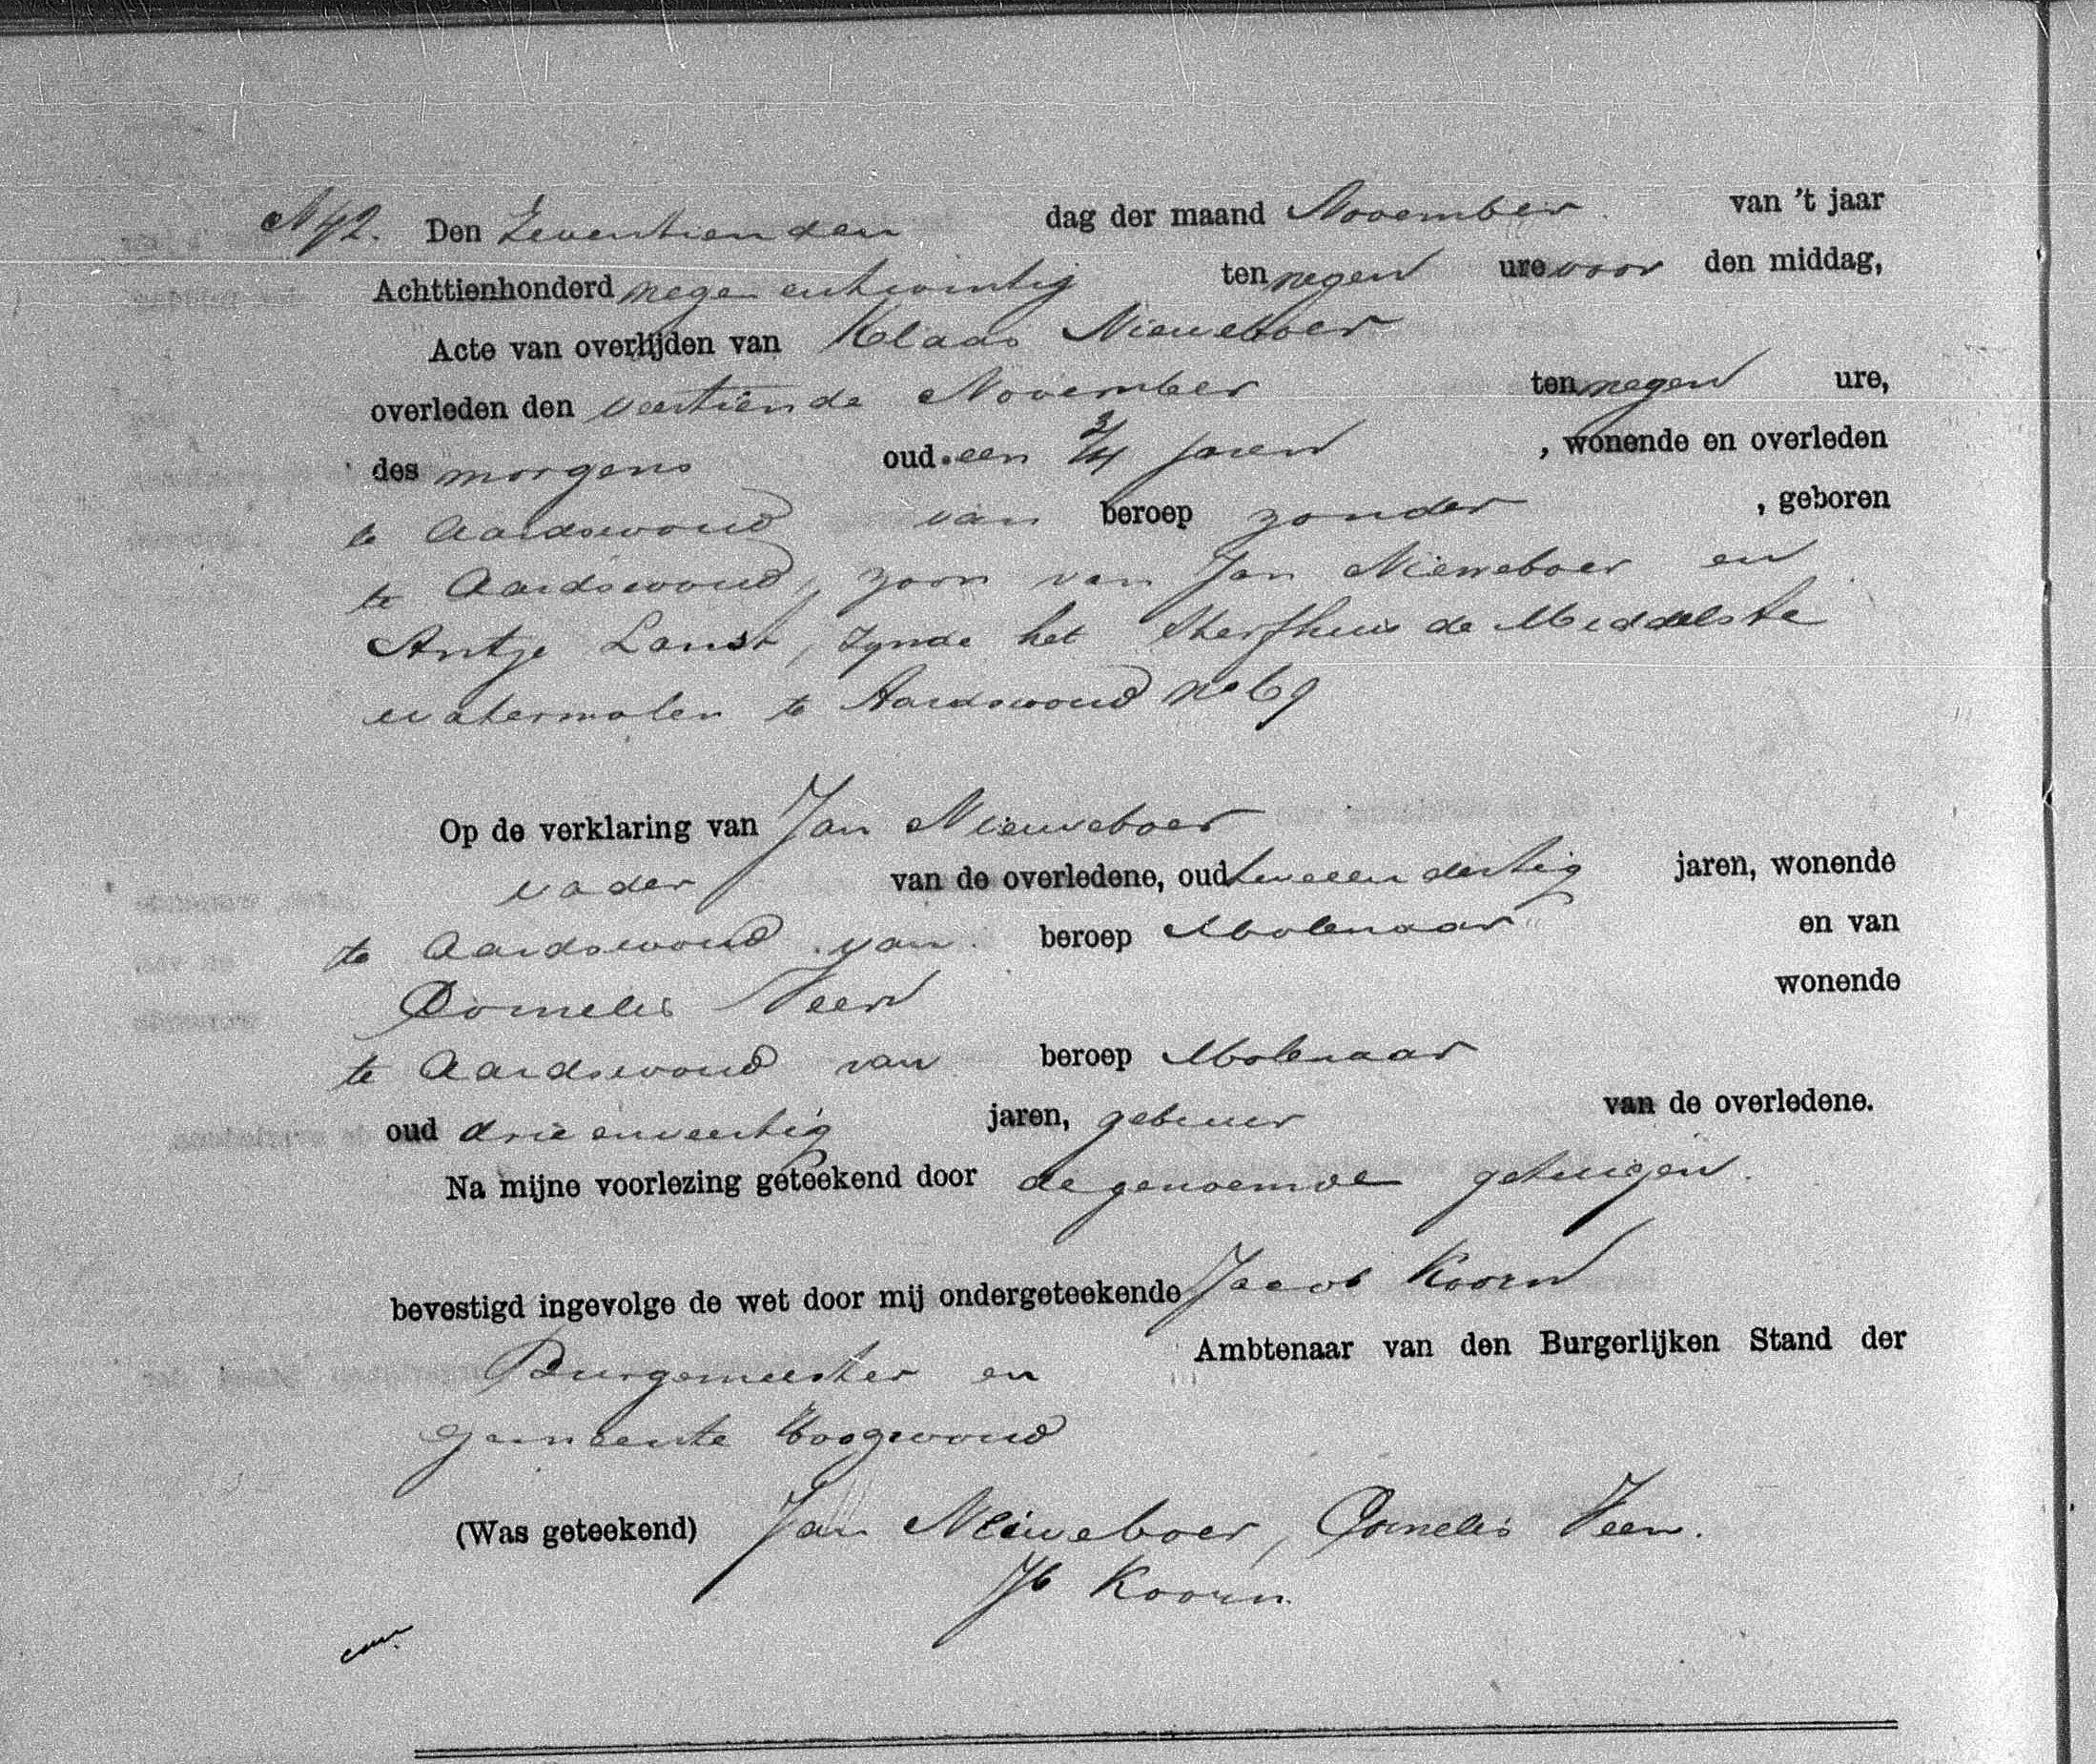 N 42. Den Zeventienden dag der maand November van 't jaar
Achttienhonderd negen entwintig ten negen ure voor den middag,
Acte van overlijden van Klaas Nieuweboer
overleden den veertiende November ten negen ure,
des morgens oud een 3/4 jaren , wonende en overleden
te Aardswoud van beroep zonder , geboren
te Aardswoud, zoon van Jan Nieuweboer en
Antje Lanst, zynde het Sterfhuis de Middelste
watermolen te Aardswoud no 69
Op de verklaring van Jan Nieuweboer
vader van de overledene, oud tweeen dertig jaren, wonende
te Aardswoud van beroep Molenaar en van
Cornelis Veen wonende
te Aardswoud van beroep Molenaar
oud drie enveertig jaren, gebuur van de overledene.
Na mijne voorlezing geteekend door de genoemde getuigen.
bevestigd ingevolge de wet door mij ondergeteekende Jacob Koorn
Burgemeester en Ambtenaar van den Burgerlijken Stand der
gemeente Hoogwoud
(Was geteekend) Jan Nieuweboer, Cornelis Veen.
Jb Koorn